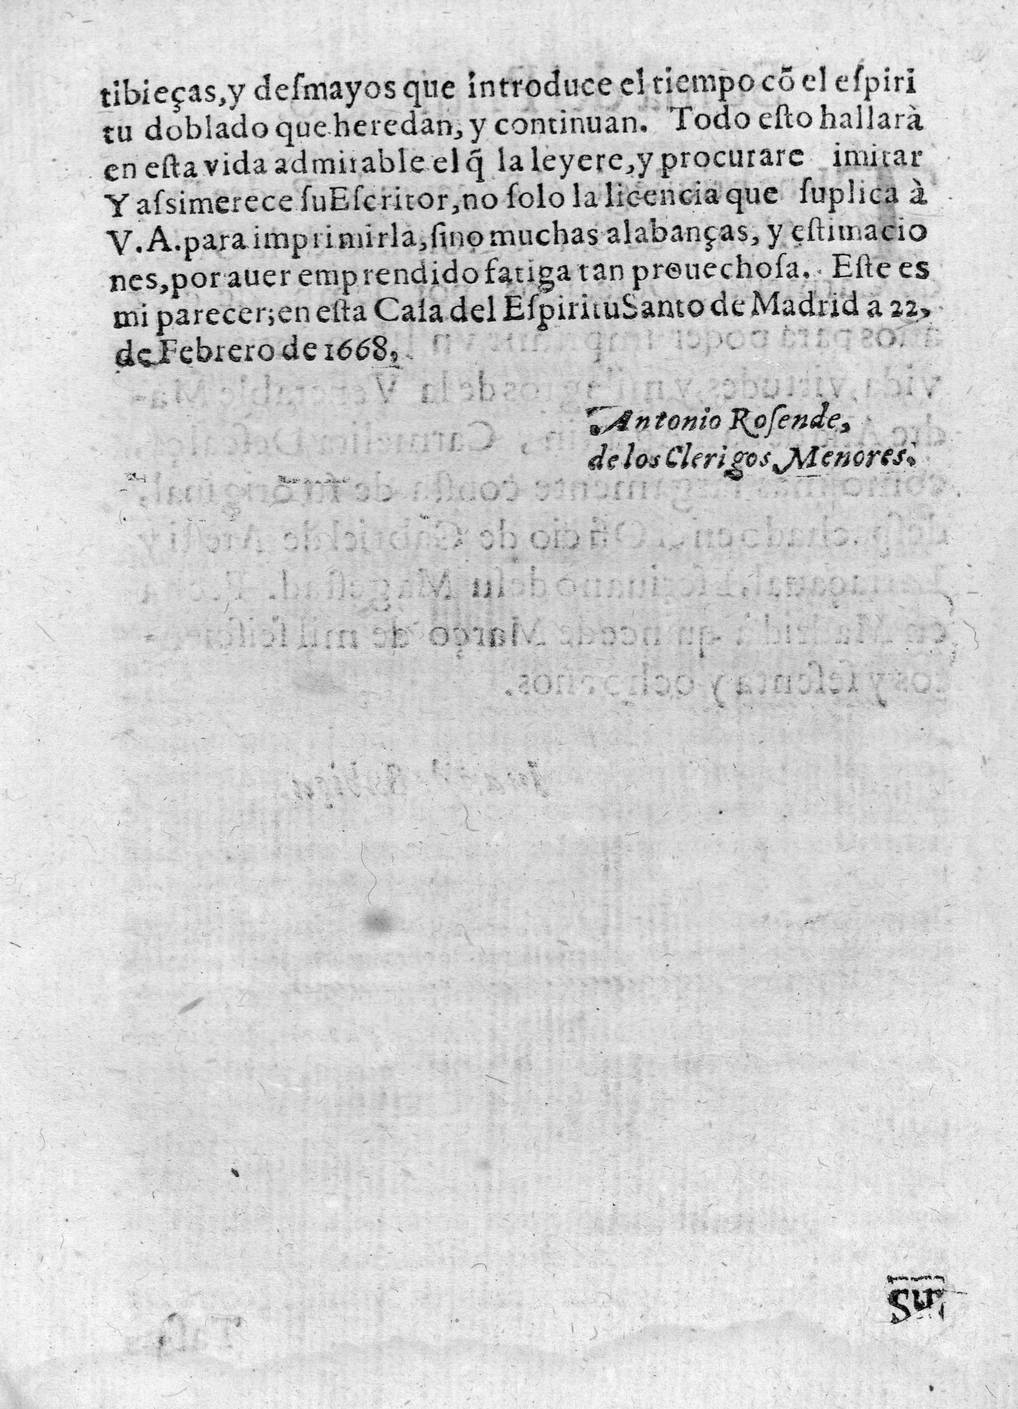 tibieças, y desmayos que introduce el tiempo cõ el espiri
tu doblado que heredan, y continuan. Todo esto hallarà
en esta vida admirable el q̃ la leyere, y procurare imitar
Y assi merece su Escritor, no solo la licencia que suplica à
V. A. para imprimirla, sino muchas alabanças, y estimacio
nes, por auer emprendido fatiga tan prouechosa. Este es
mi parecer; en esta Casa del Espiritu Santo de Madrid a 22,
de Febrero de 1668,
Antonio Rosende,
de los Clerigos Menores.
Su